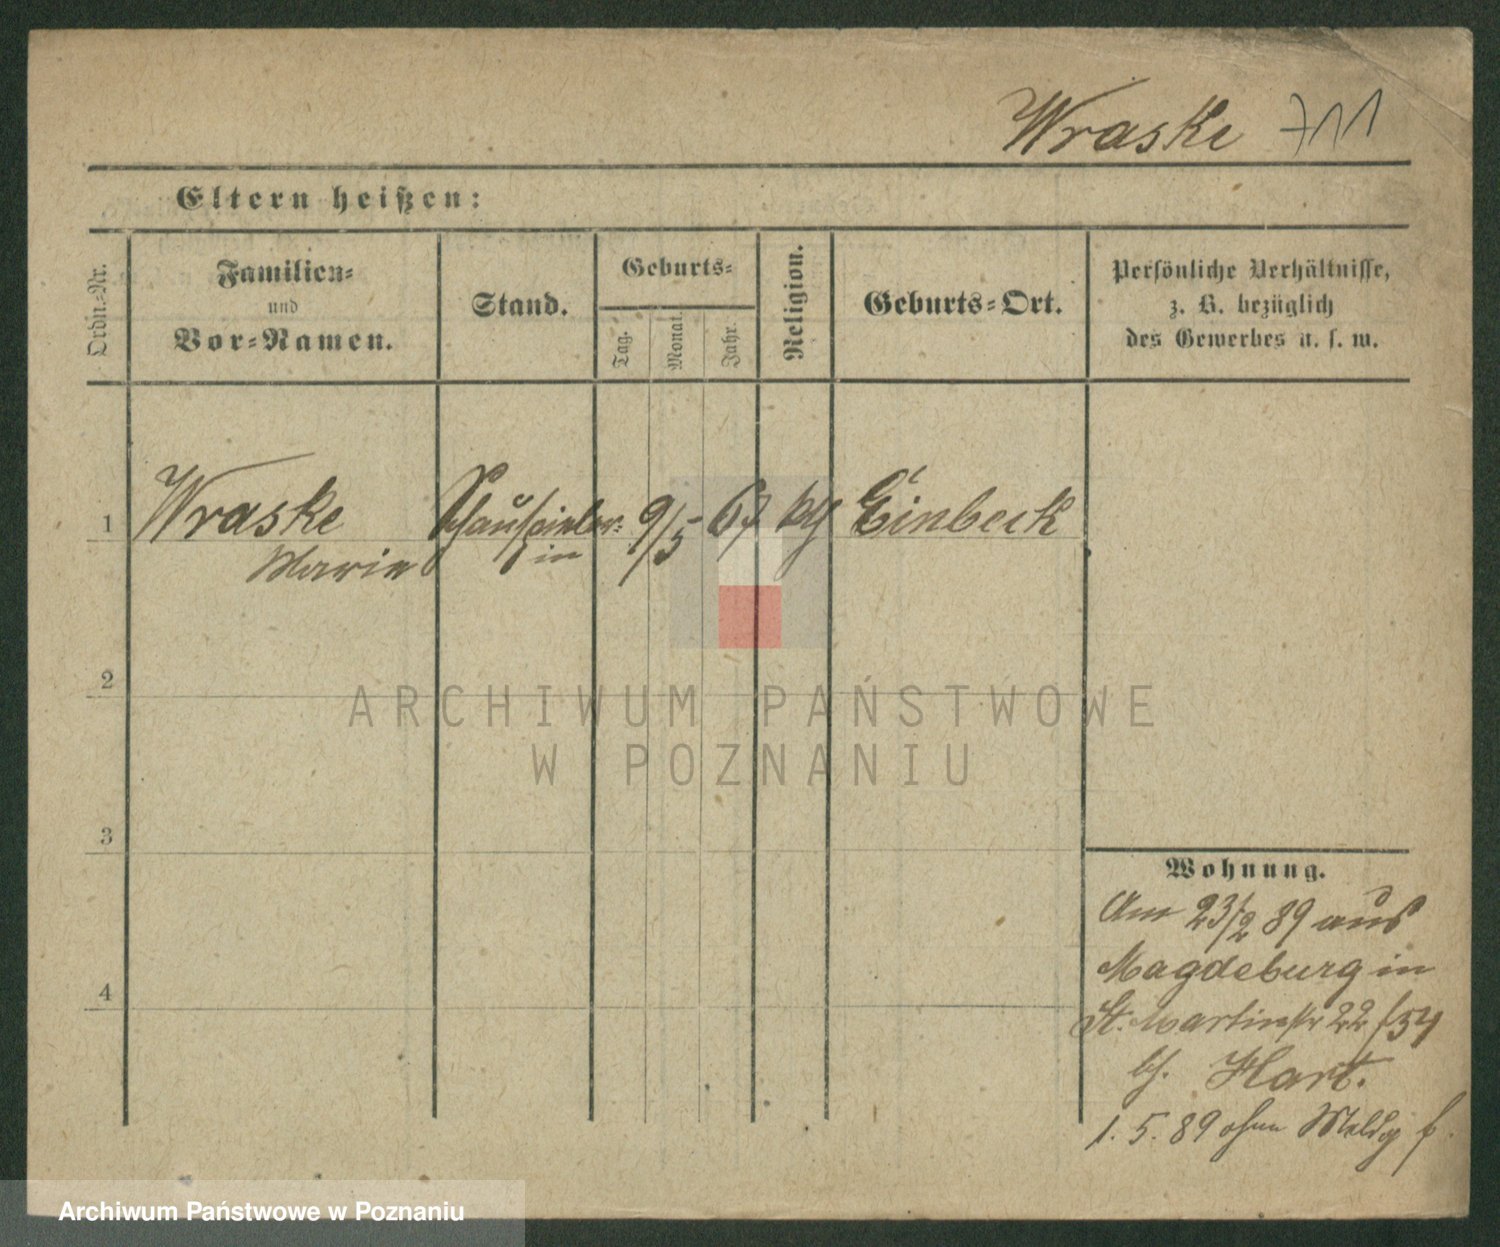 Wraske 711
Eltern heißen:
Ordn.-Nr.
Familien-
und
Vor-Namen.
Stand.
Geburts-
Tag.
Monat.
Jahr.
Religion.
Geburts-Ort.
Persönliche Verhältnisse,
z. B. bezüglich
des Gewerbes u. s. w.
1 Wraske Schauspieler- 9/5 67 Einbeck
Marie in
2
3
4
Wohnung.
Am 23/2 89 aus
Magdeburg in
St. Martinstr 22
b. Hart.
1. 5. 89 ohne Meldg f.
ARCHIWUM PAŃSTWOWE
W POZNANIU
Archiwum Państwowe w Poznaniu